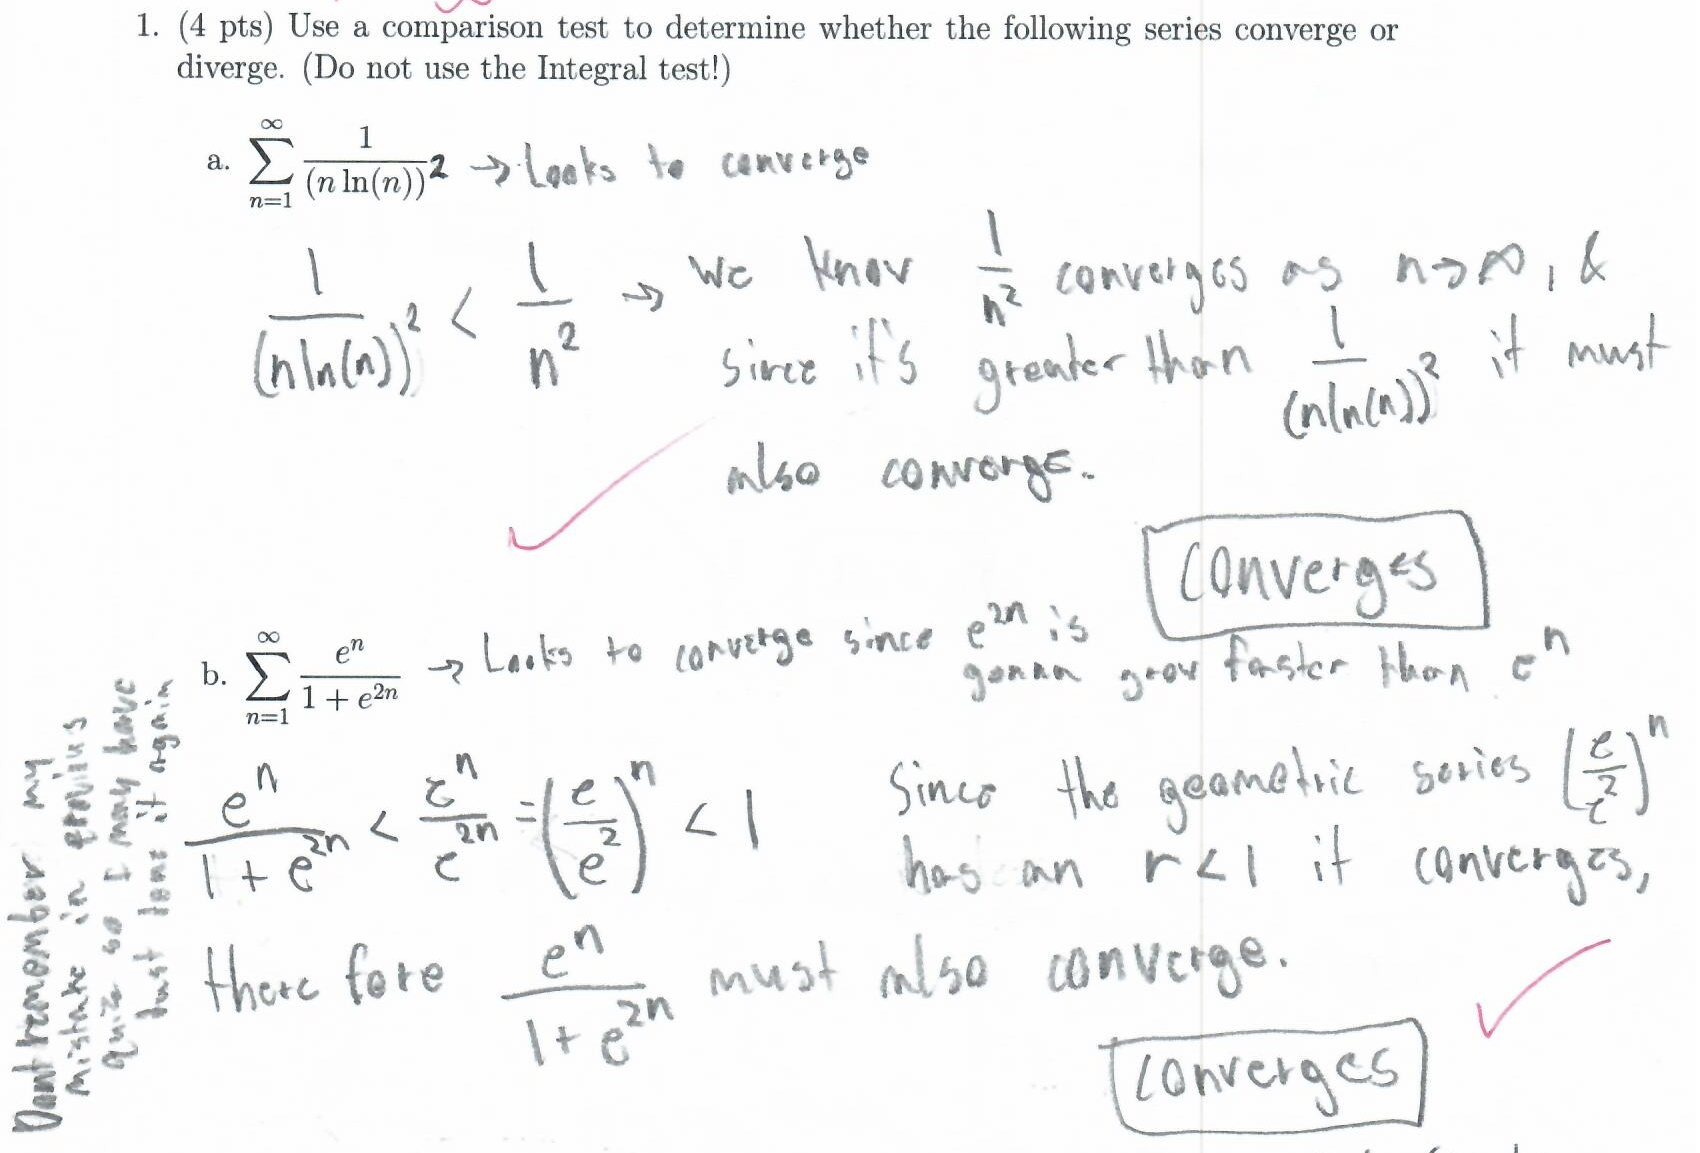 1. (4 pts) Use a comparison test to determine whether the following series converge or
diverge. (Do not use the Integral test!)
a. \sum_{n=1}^{\infty} \frac{1}{(n \ln(n))^2} → Looks to converge
\frac{1}{(n\ln(n))^2} < \frac{1}{n^2} → We know \frac{1}{n^2} converges as n→∞, &
since it's greater than \frac{1}{(n\ln(n))^2} it must
also converge.
Converges
b. \sum_{n=1}^{\infty} \frac{e^n}{1+e^{2n}} → Looks to converge since e^{2n} is
gonna grow faster than e^n
\frac{e^n}{1+e^{2n}} < \frac{e^n}{e^{2n}} = \left(\frac{e}{e^2}\right)^n < 1 Since the geometric series \left(\frac{e}{e^2}\right)^n
has an r<1 it converges,
there fore \frac{e^n}{1+e^{2n}} must also converge.
Converges
Dont remember my
mistake in previus
quiz so I may have
just done it again